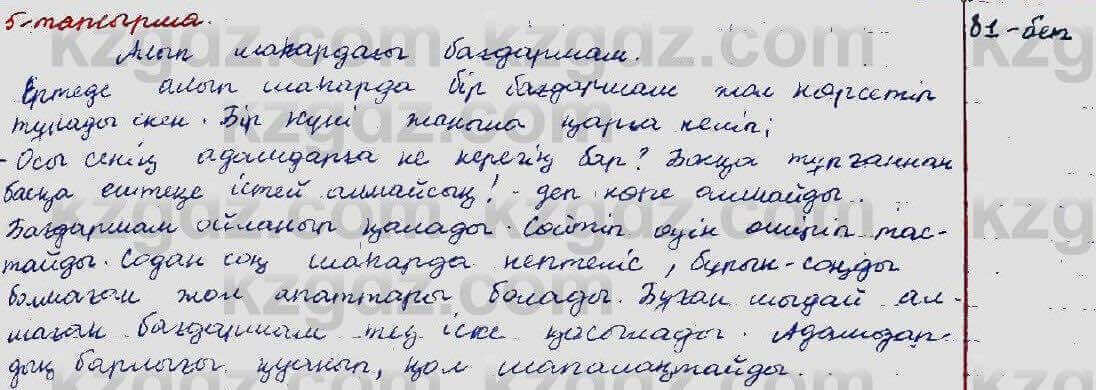 5-тапсырма.
81-бет
Алып шаһардағы бағдаршам.
Ертеде алып шаһарда бір бағдаршам жол көрсетіп
тұрады екен. Бір күні жанына қарға келіп;
- Осы сенің адамдарға не керегің бар? Босқа тұрғаннан
басқа ештеңе істей алмайсың! - деп көре алмайды.
Бағдаршам ойланып қалады. Сөйтіп өзін өшіріп тас-
тайды. Содан соң шаһарда кептеліс, бұрын-соңды
болмаған жол апаттары болады. Бұған шыдай ал-
маған бағдаршам тез іске қосылады. Адамдар-
дың барлығы қуанып, қол шапалақтайды.